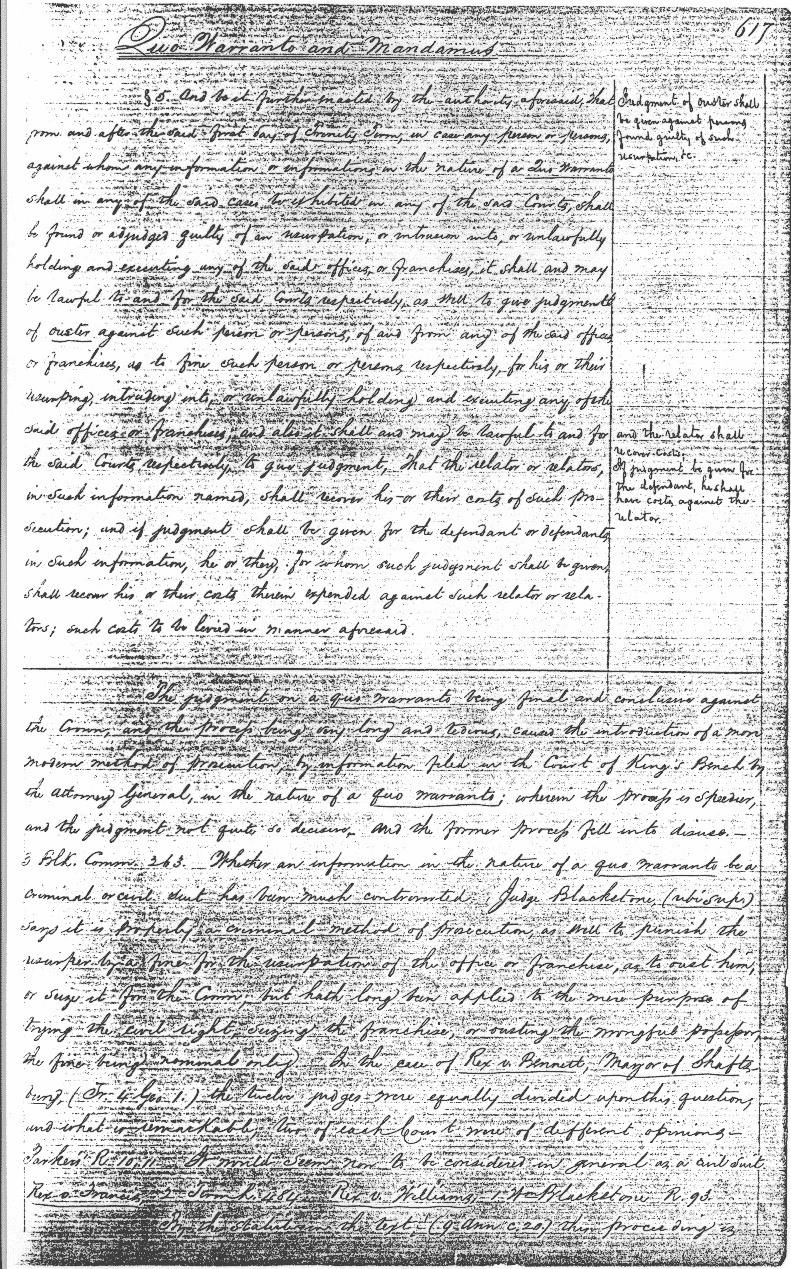 617
Quo Warranto and Mandamus
§ 5. And be it further enacted by the authority aforesaid, that
from and after the said first day of Trinity Term, in case any person or persons,
against whom any information or informations in the nature of a Quo Warranto
shall in any of the said cases be exhibited in any of the said Courts, shall
be found or adjudged guilty of an usurpation, or intrusion into, or unlawfully
holding and executing any of the said offices, or franchises, it shall and may
be lawful to and for the said Courts respectively, as well to give judgment
of ouster against such person or persons, of and from any of the said offices
or franchises, as to fine such person or persons respectively, for his or their
usurping, intruding into, or unlawfully holding and executing any of the
said offices or franchises, and also it shall and may be lawful to and for
the said Courts, respectively, to give judgment, that the relator or relators,
in such information named, shall recover his or their costs of such pro-
secution; and if judgment shall be given for the defendant or defendants
in such information, he or they, for whom such judgment shall be given,
shall recover his or their costs therein expended against such relator or rela-
tors; such costs to be levied in manner aforesaid.
Judgment of ouster shall
be given against persons
found guilty of such
usurpation, &c.
and the relator shall
recover costs.
If judgment be given for
the defendant, he shall
have costs against the
relator.
The judgment on a quo warranto being final and conclusive against
the Crown, and the process being very long and tedious, caused the introduction of a more
modern method of prosecution, by information filed in the Court of King's Bench by
the Attorney General, in the nature of a quo warranto; wherein the process is speedier,
and the judgment not quite so decisive, and the former process fell into disuse. —
3 Blk. Comm. 263. Whether an information in the nature of a quo warranto be a
criminal or civil suit has been much controverted. Judge Blackstone, (ubi supr)
says it is properly a criminal method of prosecution, as well to punish the
usurper by a fine for the usurpation of the office or franchise, as to oust him,
or seize it for the Crown, but hath long been applied to the mere purpose of
trying the civil right, seizing the franchise, or ousting the wrongful possessor,
the fine being nominal only. In the case of Rex v. Bennett, Mayor of Shafts-
bury, (Tr. 4 Geo. 1.) the twelve judges were equally divided upon this question,
and what is remarkable, two of each Court were of different opinions —
Parker's R. 10. 11. It would seem now to be considered in general as a civil suit.
Rex v. Francis, 2 Term R. 484. Rex v. Williams, 1 Wm Blackstone R. 93.
By the statute in the text, (9 Ann c. 20) this proceeding is